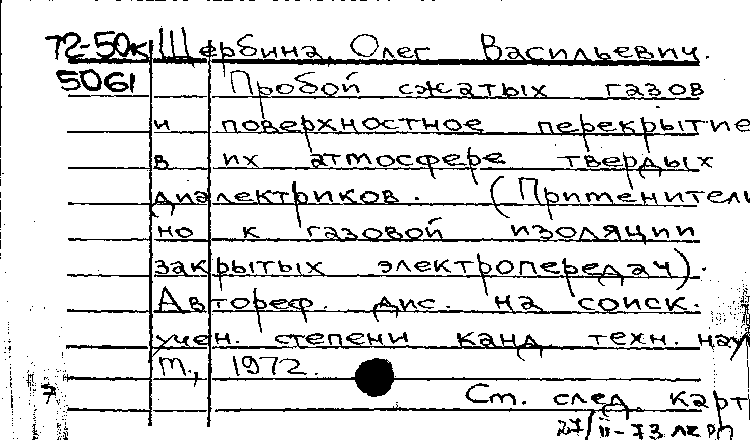 72-50к Щербина, Олег Васильевич.
5061 Пробой сжатых газов
и поверхностное перекрытие
в их атмосфере твердых
диэлектриков. (Применитель
но к газовой изоляции
закрытых электропередач).
Автореф. дис. на соиск.
учен. степени канд. техн. нау
М., 1972.
См. след. карт
27/II-73